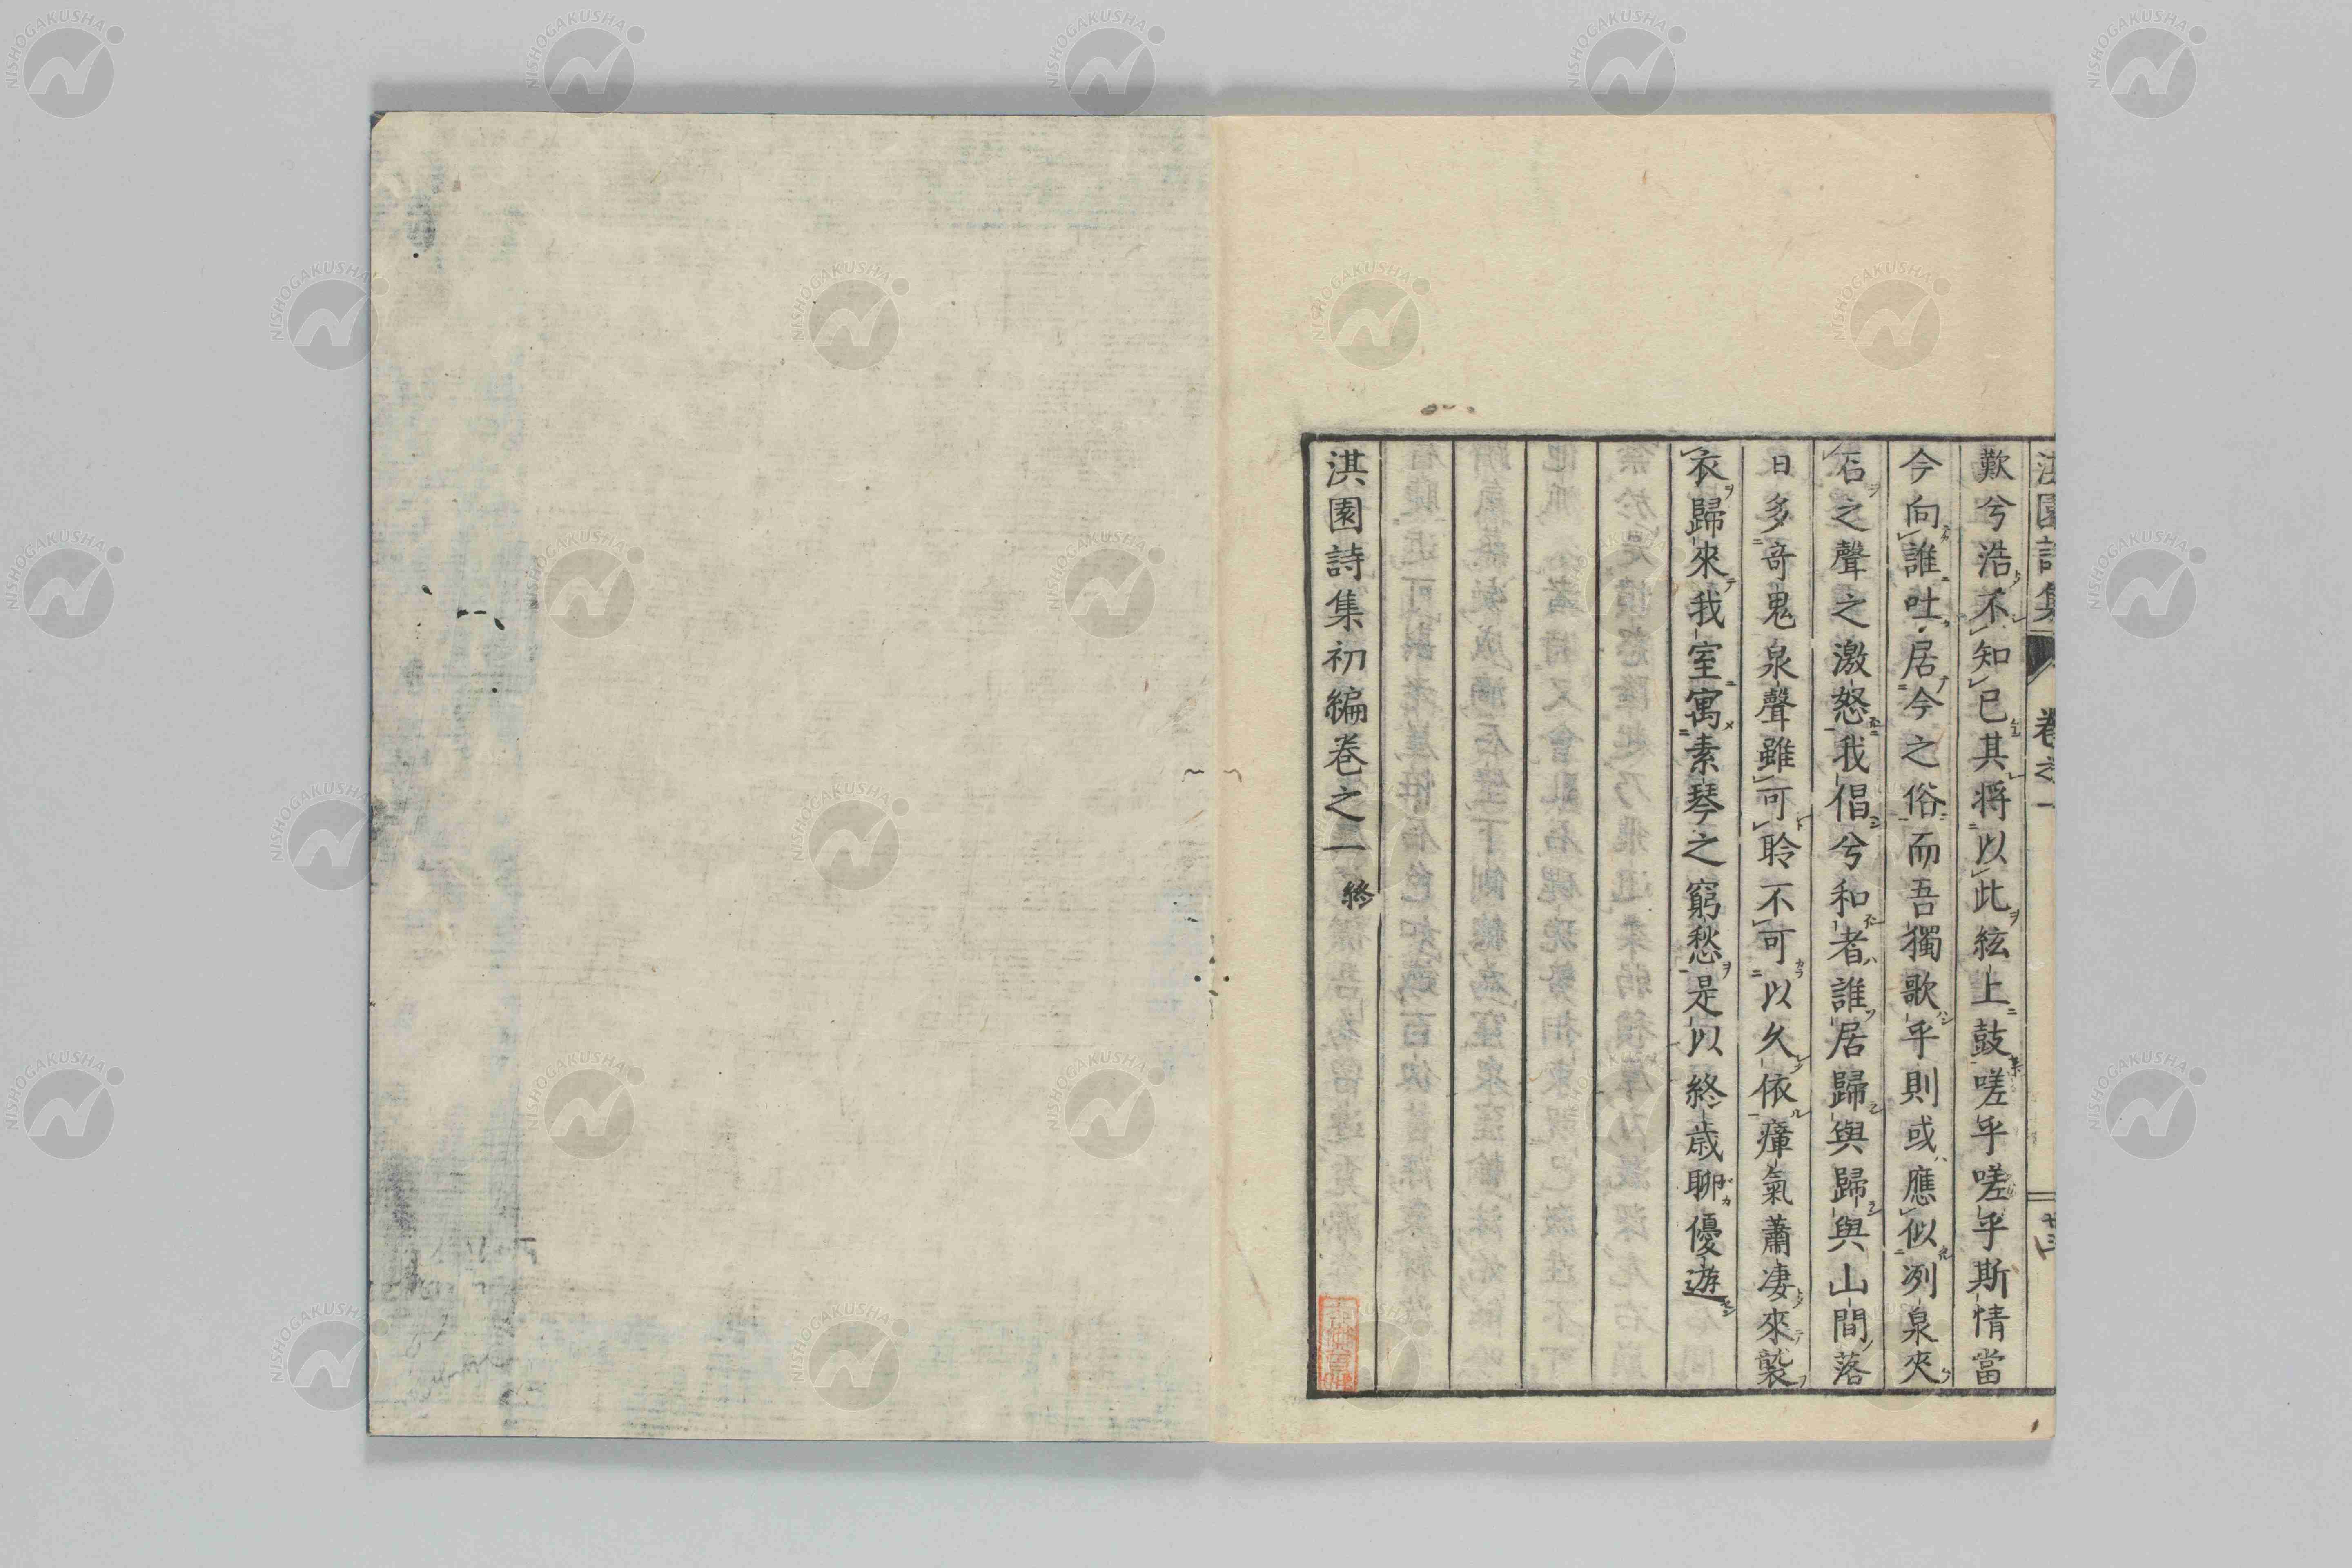 淇園詩集 卷之一
歎兮浩不知已其將以此絃上鼓嗟乎嗟乎斯情當
今向誰吐居今之俗而吾獨歌乎則或應似冽泉夾
石之聲之激怒我倡兮和者誰居歸與歸與山間落
日多奇鬼泉聲雖可聆不可以久依瘴氣蕭凄來襲
衣歸來我室寓素琴之窮愁是以終歲聊優遊
淇園詩集初編卷之一 終
NISHOGAKUSHA